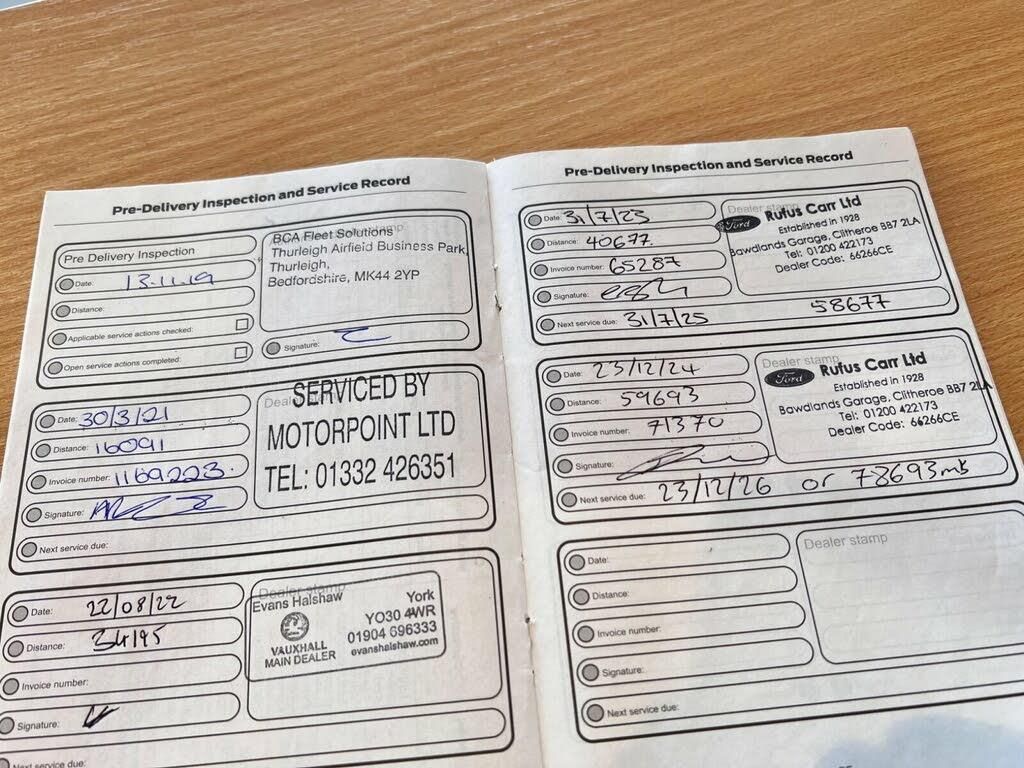 Pre-Delivery Inspection and Service Record
Pre Delivery Inspection
Date: 13.11.19
Distance:
Applicable service actions checked:
Open service actions completed:
Dealer stamp
BCA Fleet Solutions
Thurleigh Airfield Business Park,
Thurleigh,
Bedfordshire, MK44 2YP
Signature:
Date: 30/3/21
Distance: 16091
Invoice number: 1169223.
Signature:
Next service due:
SERVICED BY
MOTORPOINT LTD
TEL: 01332 426351
Date: 22/08/22
Distance: 34195
Invoice number:
Signature:
Next service due:
Dealer stamp
Evans Halshaw
VAUXHALL
MAIN DEALER
York
YO30 4WR
01904 696333
evanshalshaw.com
Pre-Delivery Inspection and Service Record
Date: 31/7/23
Distance: 40677.
Invoice number: 65287
Signature:
Next service due: 31/7/25 58677
Dealer stamp
Ford Rufus Carr Ltd
Established in 1928
Bawdlands Garage, Clitheroe BB7 2LA
Tel: 01200 422173
Dealer Code: 66266CE
Date: 23/12/24
Distance: 59693
Invoice number: 71370
Signature:
Next service due: 23/12/26 or 78693
Dealer stamp
Ford Rufus Carr Ltd
Established in 1928
Bawdlands Garage, Clitheroe BB7 2LA
Tel: 01200 422173
Dealer Code: 66266CE
Date:
Distance:
Invoice number:
Signature:
Next service due:
Dealer stamp